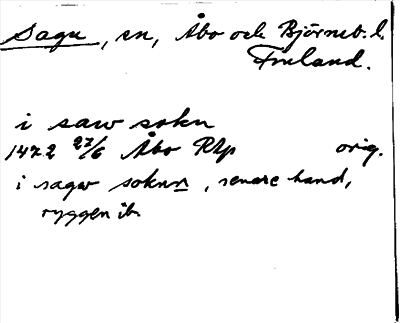 Sagu, sn, Åbo och Björneb. l.
Finland.
i saw sokn
1472 27/6 Åbo RAp orig.
i sagw soknn, senare hand,
ryggen ib.